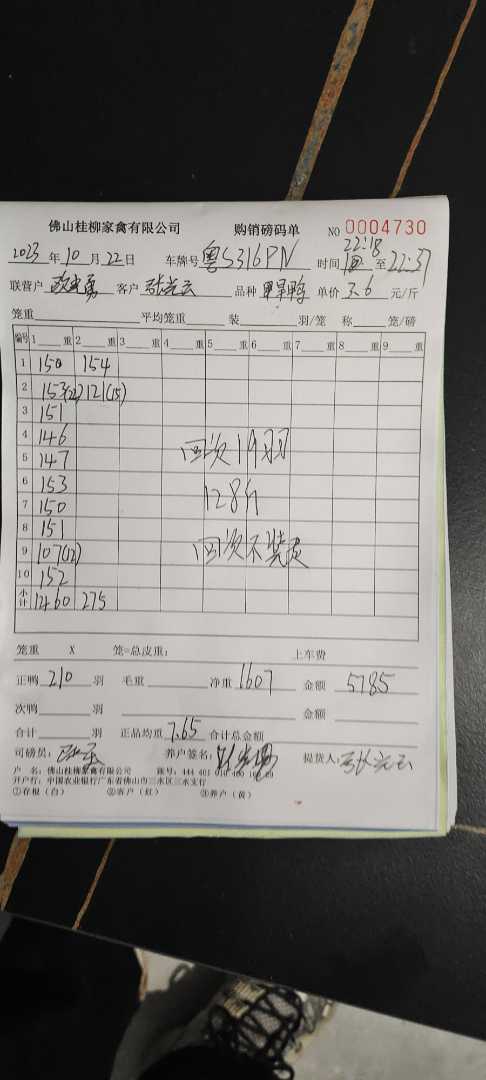 佛山桂柳家禽有限公司 购销磅码单 NO 0004730
22:18
2023 年 10 月 22 日 车牌号 粤S316PN 时间 至 22:37
联营户 客户 张光云 品种 鸭 单价 3.6 元/斤
笼重 平均笼重 装 羽/笼 称 笼/磅
编号 1 重 2 重 3 重 4 重 5 重 6 重 7 重 8 重 9 重
1 150 154
2 153(12) 121(15)
3 151
4 146 回次19羽
5 147
6 153 128斤
7 150
8 151 回次不装责
9 107(12)
10 152
小计 1460 275
笼重 X 笼=总皮重: 上车费
正鸭 210 羽 毛重 净重 1607 金额 5785
次鸭 羽 金额
合计 羽 正品均重 7.65 合计总金额
司磅员: 养户签名: 提货人: 张光云
户 名: 佛山桂柳家禽有限公司 账号: 444 401
开户行: 中国农业银行广东省佛山市三水区三水支行
①存根(白) ②客户(红) ③养户(黄)